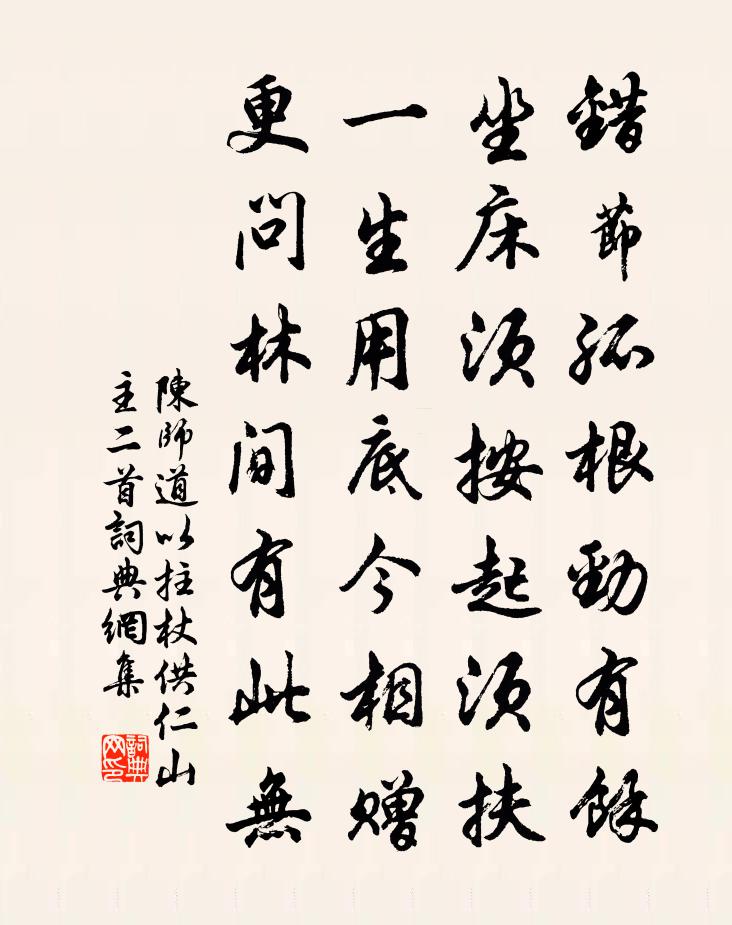 錯節孤根勁有餘
坐床须按起须扶
一生用底今相贈
更问林间有此無
陳師道以拄杖供仁山
主二首詞典網集
詞典網印